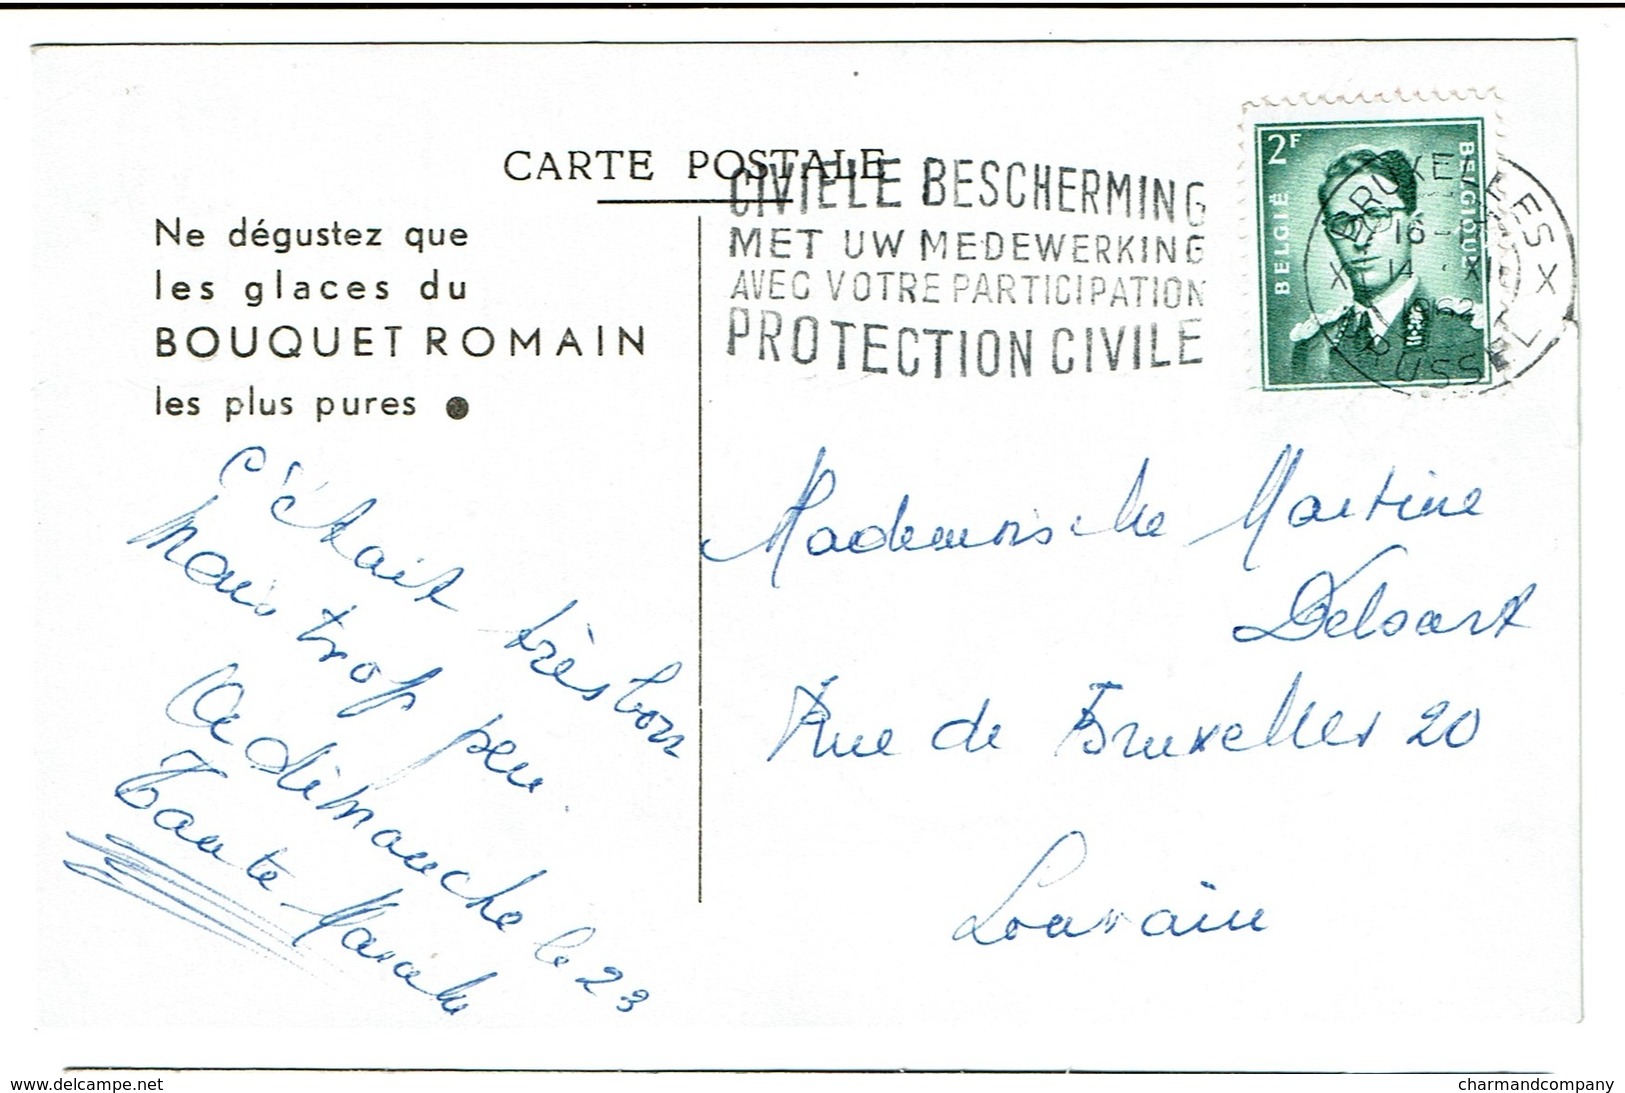 CARTE POSTALE
Ne dégustez que
les glaces du
BOUQUET ROMAIN
les plus pures
CIVIELE BESCHERMING
MET UW MEDEWERKING
AVEC VOTRE PARTICIPATION
PROTECTION CIVILE
2F
BELGIË
BELGIQUE
X BRUXELLES X
16
14 XI
1962
BRUSSEL
C'était très bon
mais trop peu.
A dimanche le 23
Tante Marcelle
Mademoiselle Martine
Delsart
Rue de Bruxelles 20
Louvain
www.delcampe.net
charmandcompany